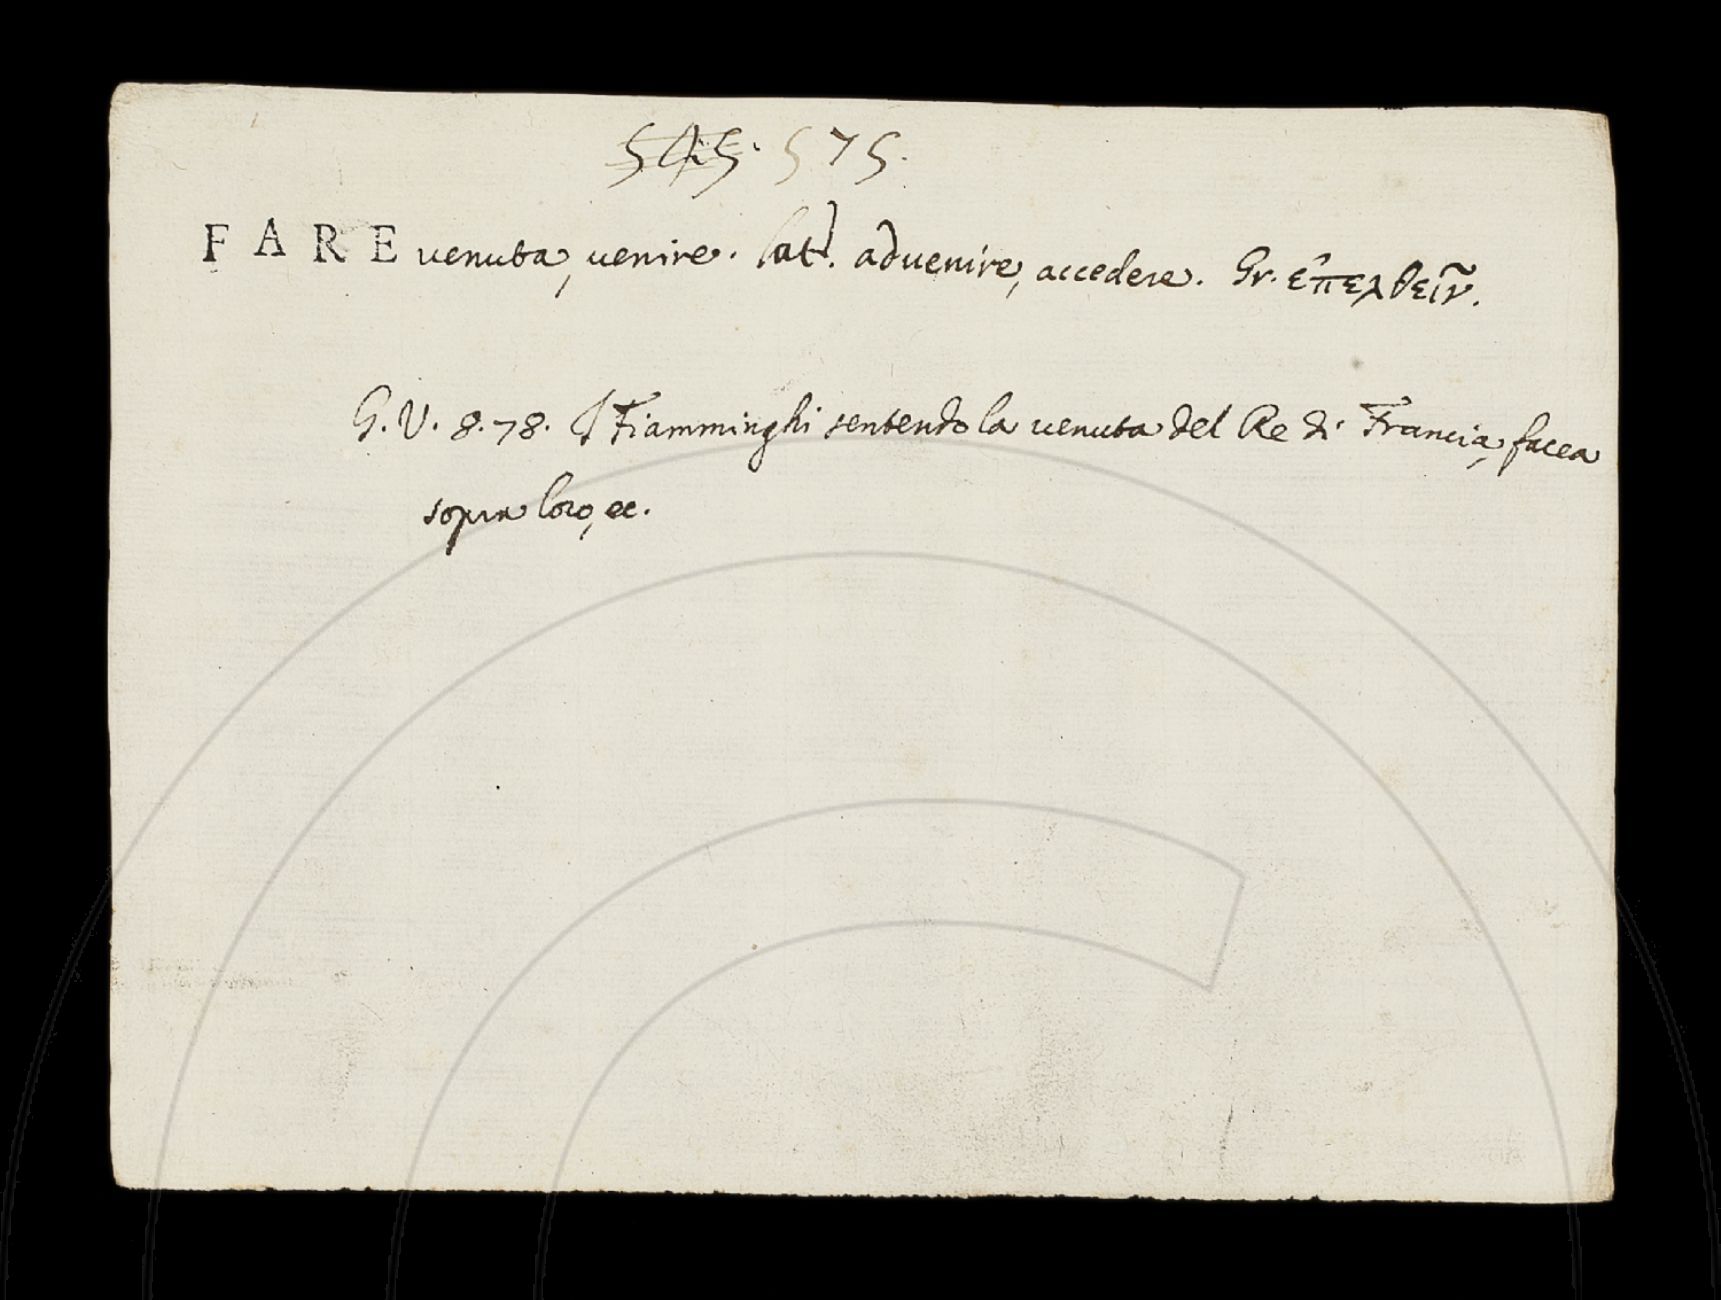 545. 575.
FARE venuta, venire. lat. advenire, accedere. Gr. ἐπελθεῖν.
G. V. 8. 78. I Fiamminghi sentendo la venuta del Re di Francia, facea
sopra loro, ec.